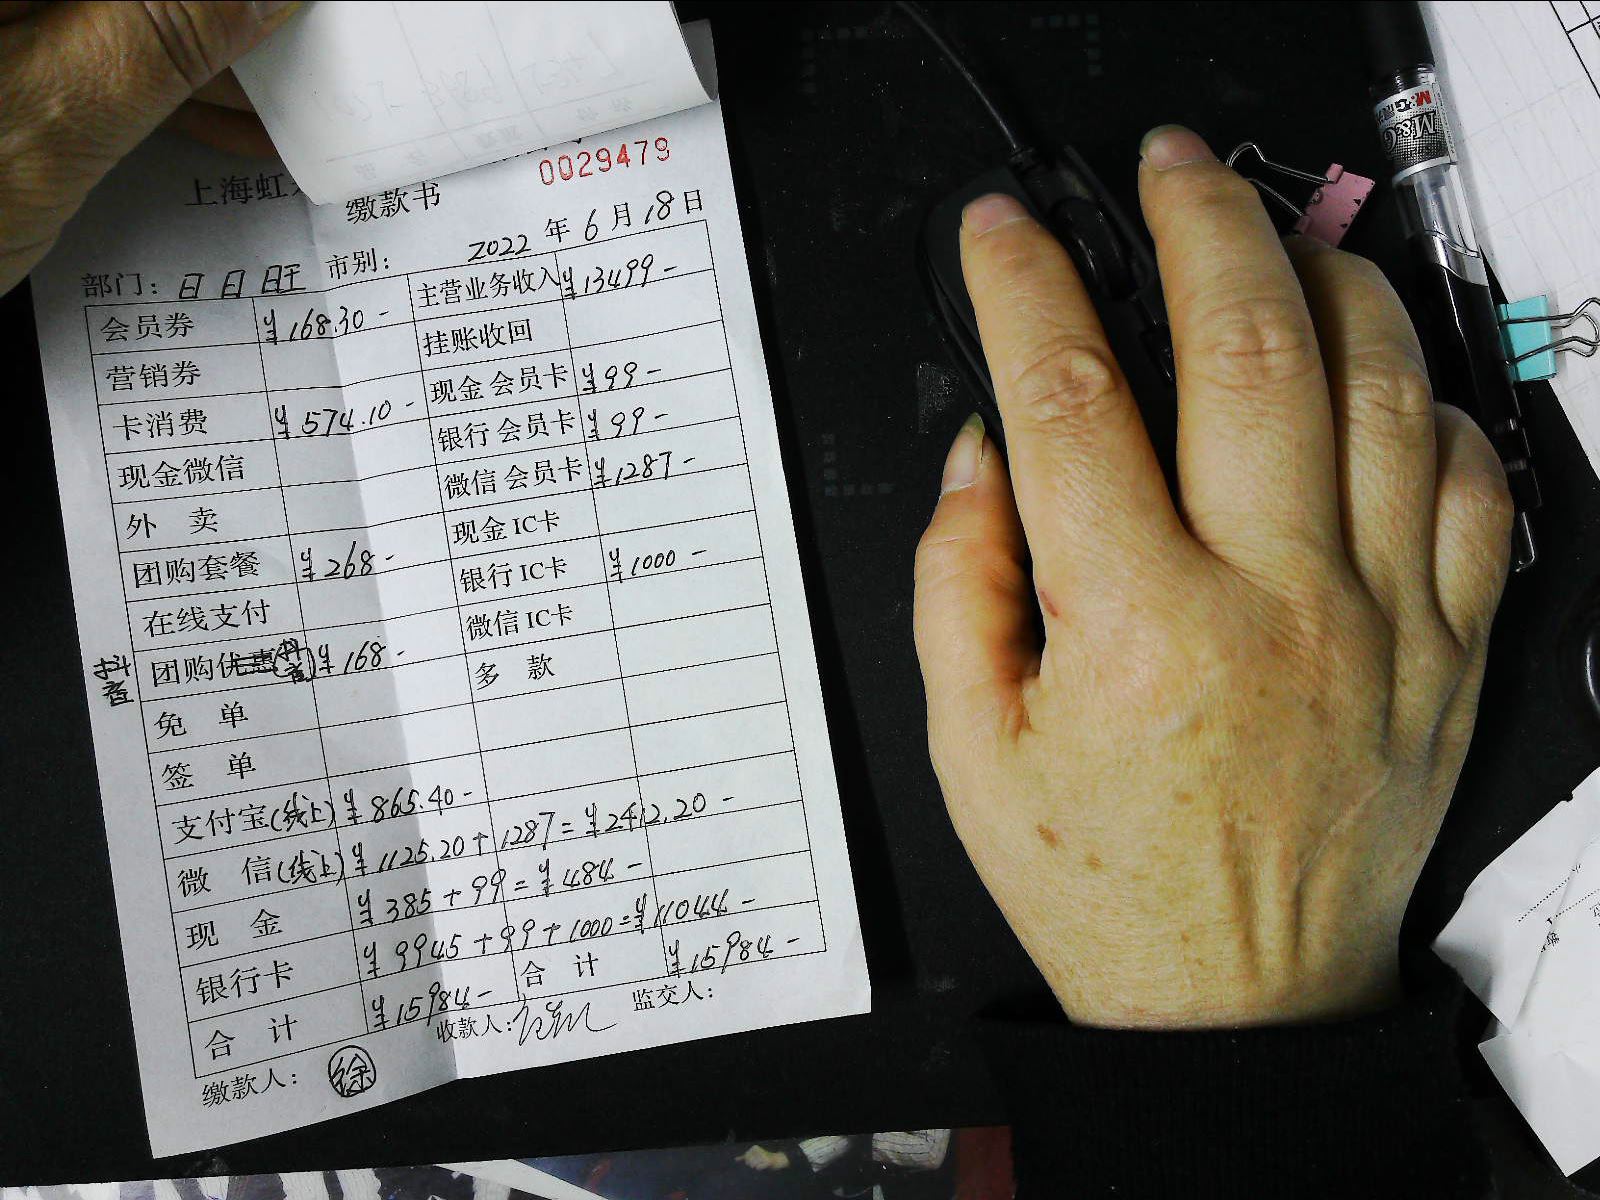 0029479
上海虹
缴款书
2022 年 6 月 18 日
部门: 日日旺 市别:
会员券 ¥168.30- 主营业务收入 ¥13499-
营销券 挂账收回
卡消费 ¥574.10- 现金会员卡 ¥99-
现金微信 银行会员卡 ¥99-
外 卖 微信会员卡 ¥1287-
团购套餐 ¥268- 现金IC卡
在线支付 银行IC卡 ¥1000-
抖音 团购优惠(抖音) ¥168- 微信IC卡
免 单 多 款
签 单
支付宝(线上) ¥865.40-
微 信(线上) ¥1125.20+1287=¥2412.20-
现 金 ¥385+99=¥484-
银行卡 ¥9945+99+1000=¥11044-
合 计 ¥15984- 合 计 ¥15984-
缴款人: 徐 收款人: 监交人:
M&G